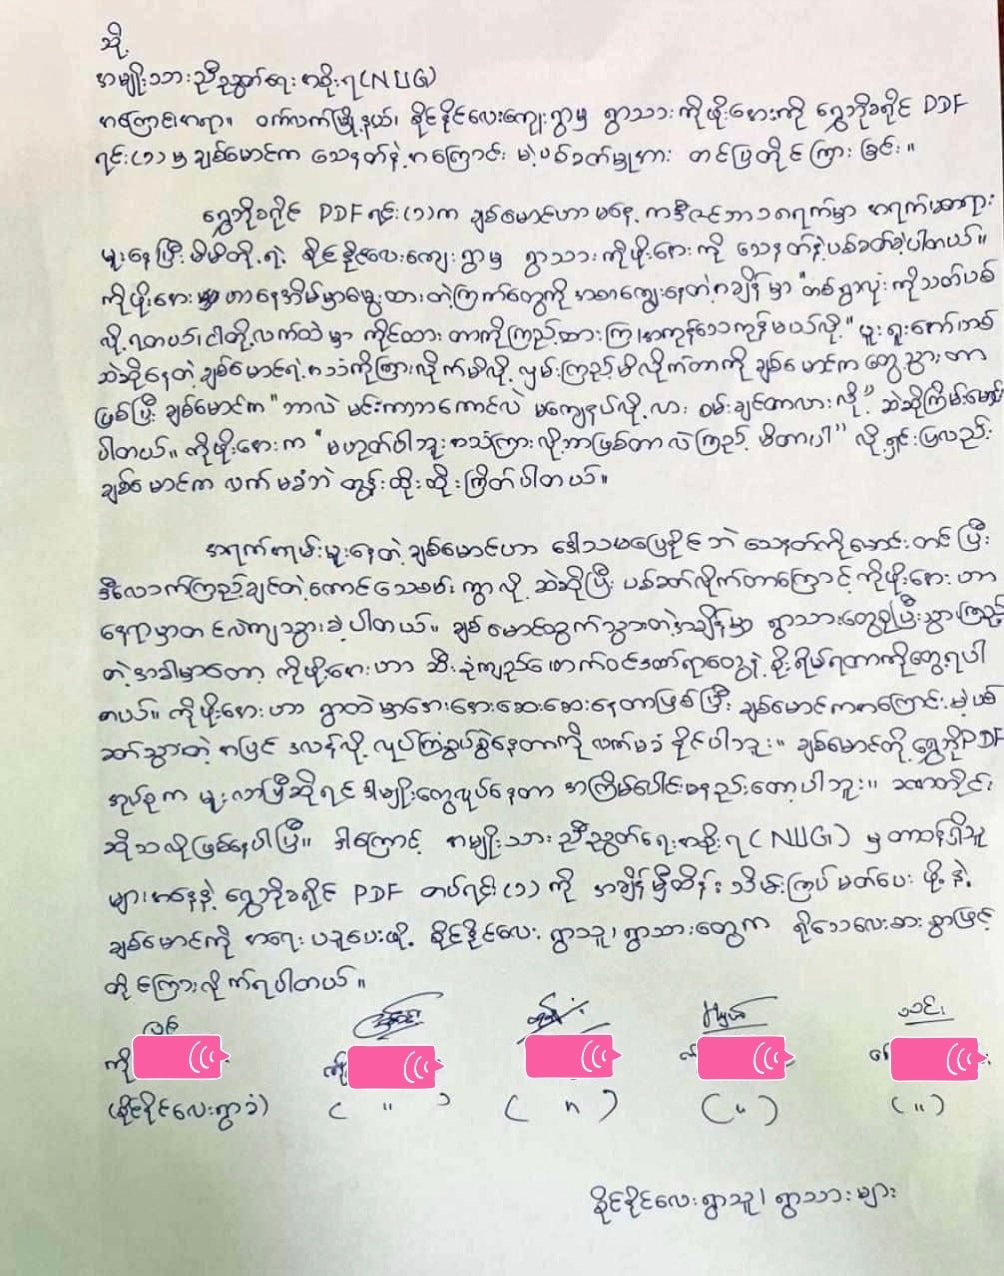 သို့
အမျိုးသားညီညွတ်ရေးအစိုးရ(NUG)
အကြောင်းအရာ။ ဝက်လက်မြို့နယ်၊ ခိုင်ခိုင်လေးကျေးရွာမှ ရွာသားကိုဖိုးအေးကို ရွှေဘိုခရိုင် PDF
ရင်း(၁)မှ ချစ်မောင်က သေနတ်နဲ့အကြောင်းမဲ့ပစ်ခတ်မှုအား တင်ပြတိုင်ကြားခြင်း။
ရွှေဘိုခရိုင် PDF ရင်း(၁)က ချစ်မောင်ဟာ မနေ့ကဒီဇင်ဘာ ရက်မှာ အရက်သေစာ
မူးနေပြီး မိမိတို့ရဲ့ ခိုင်ခိုင်လေးကျေးရွာမှ ရွာသားကိုဖိုးအေးကို သေနတ်နဲ့ပစ်ခတ်ခဲ့ပါတယ်။
ကိုဖိုးအေး ဟာနေအိမ်မှာမွေးထားတဲ့ကြက်တွေကို အစာကျွေးနေတဲ့အချိန်မှာ "တစ်ရွာလုံးကိုသတ်ပစ်
လို့ရတယ်၊ ငါတို့လက်ထဲမှာ ကိုင်ထားတာကိုကြည့်ထားကြ၊ အကုန်သေကုန်မယ်လို့" မူးရူးအော်ဟစ်
ဆဲဆိုနေတဲ့ ချစ်မောင်ရဲ့အသံကိုကြားလိုက်မိလို့ လှမ်းကြည့်မိလိုက်တာကို ချစ်မောင်ကတွေ့သွားတာ
ဖြစ်ပြီး ချစ်မောင်က "ဘာလဲ မင်းကဘာကောင်လဲ မကျေနပ်လို့လား စမ်းချင်တာလားလို့" ဆဲဆိုကြိမ်းမောင်း
ပါတယ်။ ကိုဖိုးအေးက "မဟုတ်ပါဘူး အသံကြားလို့ဘာဖြစ်တာလဲကြည့်မိတာပါ" လို့ ရှင်းပြလည်း
ချစ်မောင်က လက်မခံဘဲ တွန်းထိုးထိုးကြိတ်ပါတယ်။
အရက်ကြမ်းမူးနေတဲ့ ချစ်မောင်ဟာ ဒေါသမပြေနိုင်ဘဲ သေနတ်ကိုမောင်းတင်ပြီး
ဒီလောက်ကြည့်ချင်တဲ့ကောင်သေစမ်းကွာလို့ ဆဲဆိုပြီး ပစ်ခတ်လိုက်တာကြောင့် ကိုဖိုးအေးဟာ
နေရာမှာတင်လဲကျသွားခဲ့ပါတယ်။ ချစ်မောင်ထွက်သွားတဲ့အချိန်မှာ ရွာသားတွေစုပြီးသွားကြည့်
တဲ့အခါမှာတော့ ကိုဖိုးအေးဟာ ဆီးခုံကျည်ဖောက်ဝင်ဒဏ်ရာတွေနဲ့ စိုးရိမ်ရတာကိုတွေ့ရပါ
တယ်။ ကိုဖိုးအေးဟာ ရွာထဲမှာအေးအေးဆေးဆေးနေတာဖြစ်ပြီး ချစ်မောင်ကအကြောင်းမဲ့ပစ်
ခတ်သွားတဲ့အပြင် ဒလန်လို့ လုပ်ကြံစွပ်စွဲနေတာကို လက်မခံနိုင်ပါဘူး။ ချစ်မောင်တို့ ရွှေဘိုPDF
အုပ်စုက မူးလာပြီဆိုရင် ဒါမျိုးတွေလုပ်နေတာ အကြိမ်ပေါင်းမနည်းတော့ပါဘူး။ ခဏတိုင်း
ဆိုသလိုဖြစ်နေပါပြီ။ ဒါကြောင့် အမျိုးသားညီညွတ်ရေးအစိုးရ(NUG) မှ တာဝန်ရှိသူ
များအနေနဲ့ ရွှေဘိုခရိုင် PDF တပ်ရင်း(၁)ကို အချိန်မီထိန်းသိမ်းကြပ်မတ်ပေးဖို့နဲ့
ချစ်မောင်ကို အရေးယူပေးဖို့ ခိုင်ခိုင်လေးရွာသူ၊ ရွာသားတွေက ရိုသေလေးစားစွာဖြင့်
တိုင်ကြားလိုက်ရပါတယ်။
ကို
(ခိုင်ခိုင်လေးရွာခံ) ( " ) ( " ) ( " ) ( " )
ခိုင်ခိုင်လေးရွာသူ၊ ရွာသားများ